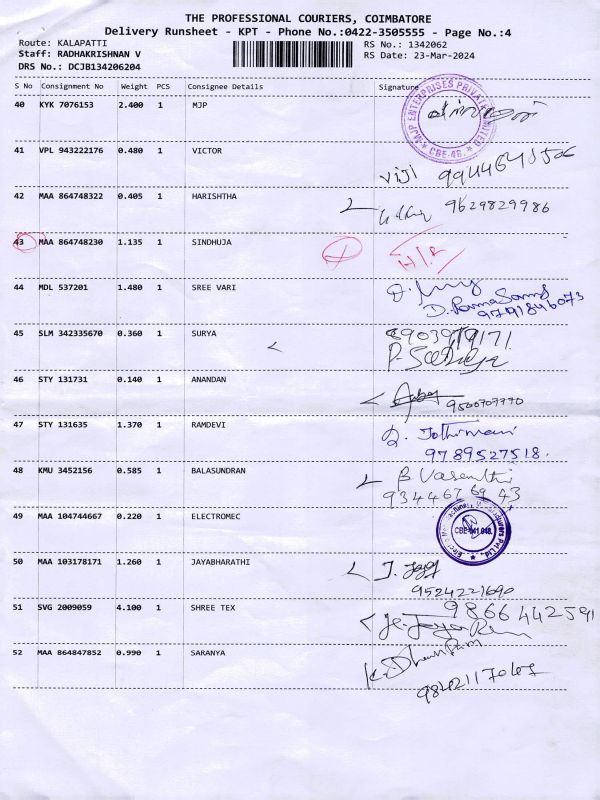 THE PROFESSIONAL COURIERS, COIMBATORE
Delivery Runsheet - KPT - Phone No.:0422-3505555 - Page No.:4
Route: KALAPATTI
Staff: RADHAKRISHNAN V
DRS No.: DCJB134206204
RS No.: 1342062
RS Date: 23-Mar-2024
S No Consignment No Weight PCS Consignee Details Signature
40 KYK 7076153 2.400 1 MJP
MJP ENTERPRISES PRIVATE LIMITED
CBE-48.
41 VPL 943222176 0.480 1 VICTOR
Viji
42 MAA 864748322 0.405 1 HARISHTHA
9629829986
43 MAA 864748230 1.135 1 SINDHUJA
44 MDL 537201 1.480 1 SREE VARI
9791846073
45 SLM 342335670 0.360 1 SURYA
46 STY 131731 0.140 1 ANANDAN
9500707770
47 STY 131635 1.370 1 RAMDEVI
Jothimani
9789527518.
48 KMU 3452156 0.585 1 BALASUNDRAN
B Vasanthi
9344676943
49 MAA 104744667 0.220 1 ELECTROMEC
50 MAA 103178171 1.260 1 JAYABHARATHI
9524221690
51 SVG 2009059 4.100 1 SHREE TEX
9866442591
52 MAA 864847852 0.990 1 SARANYA